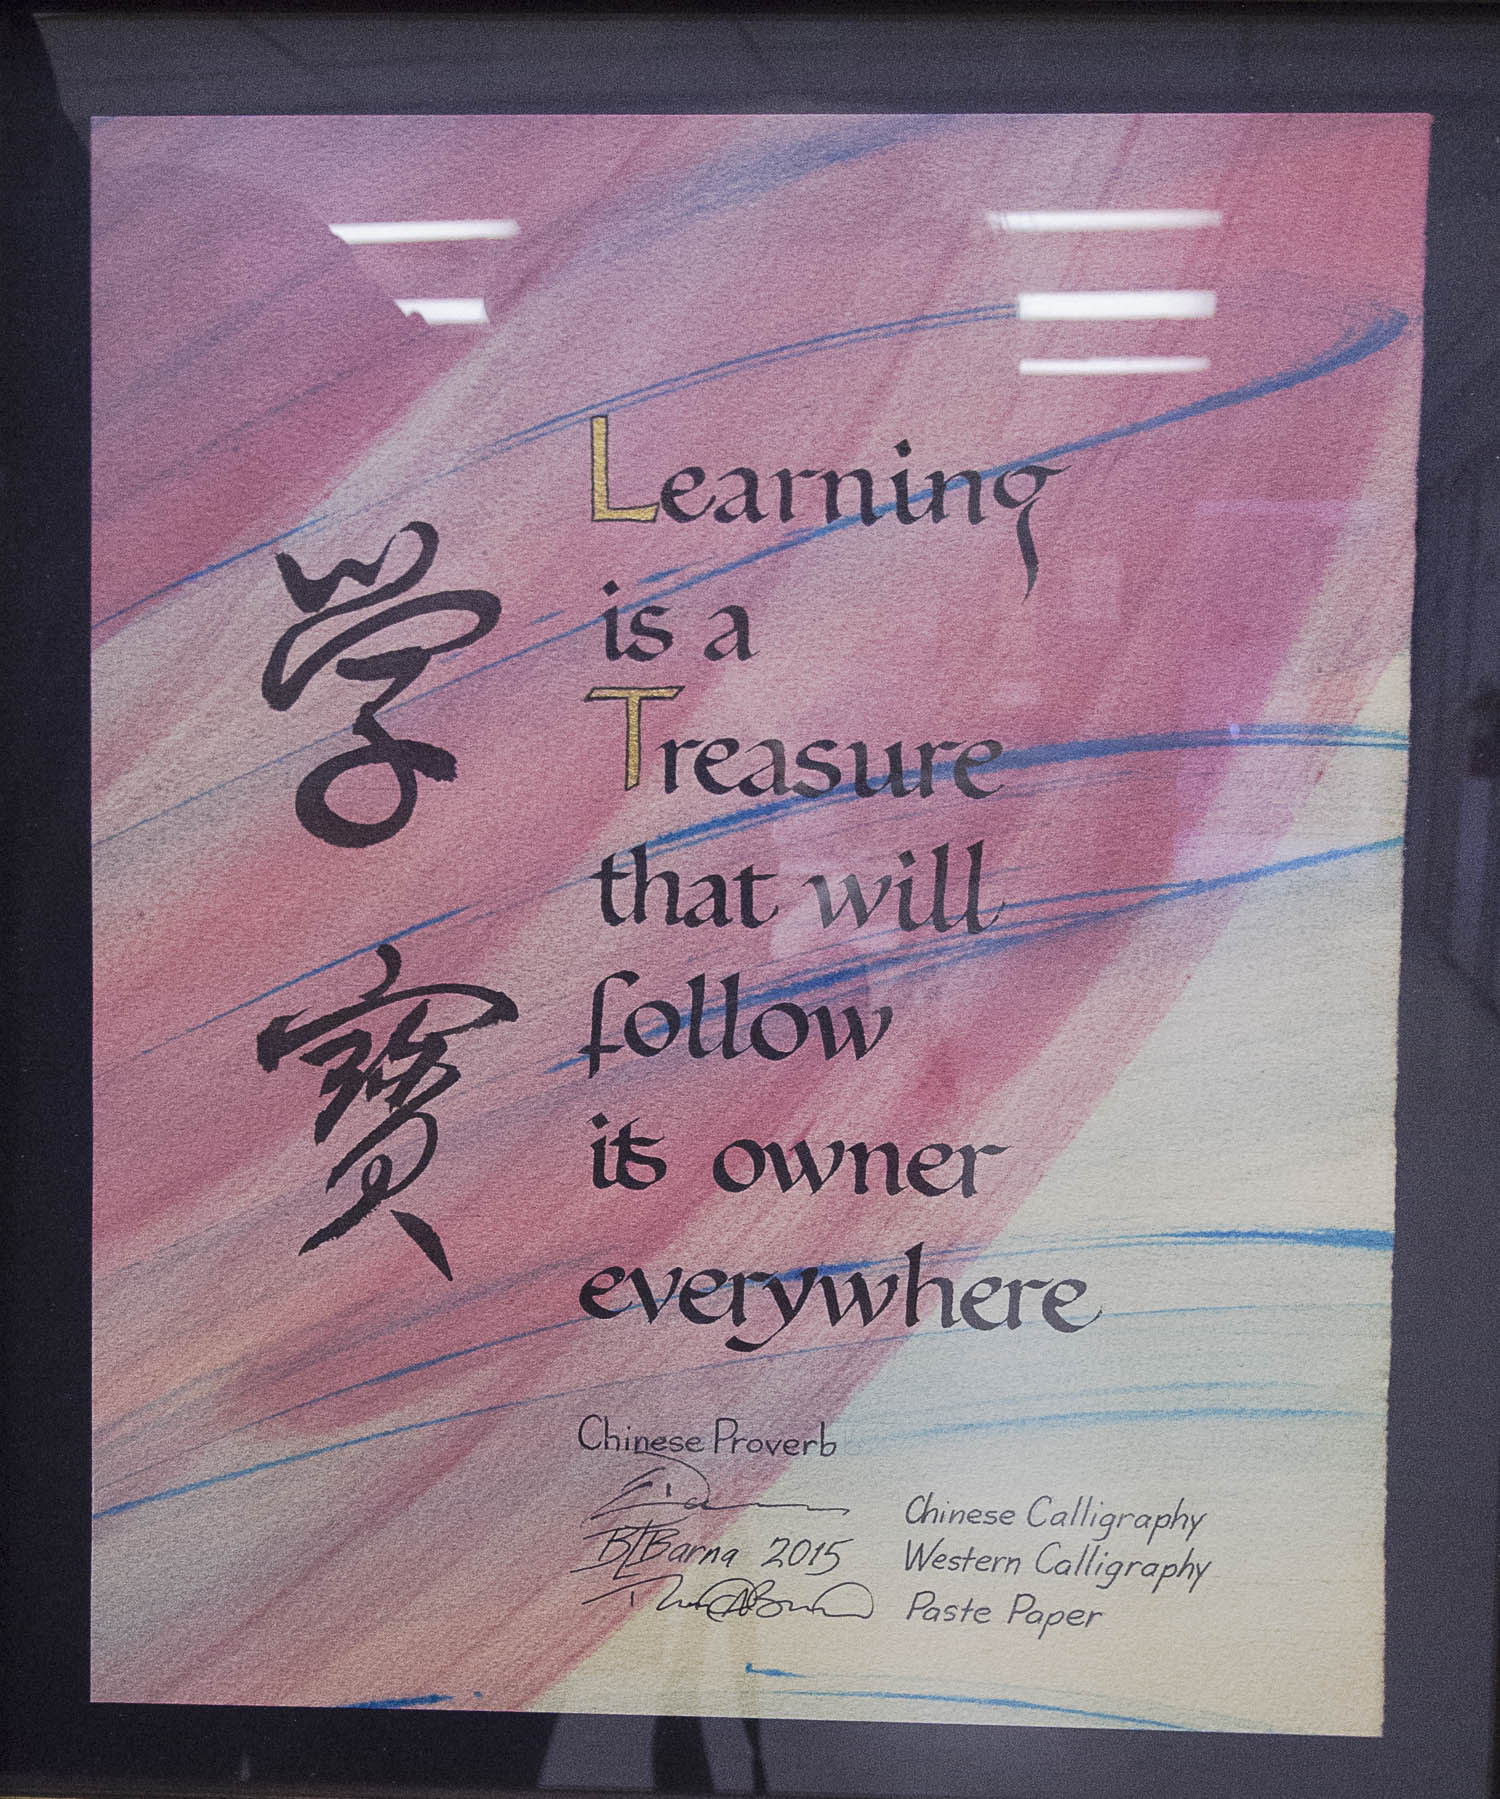 學
寶
Learning
is a
Treasure
that will
follow
its owner
everywhere
Chinese Proverb
Chinese Calligraphy
BLBarna 2015 Western Calligraphy
Paste Paper